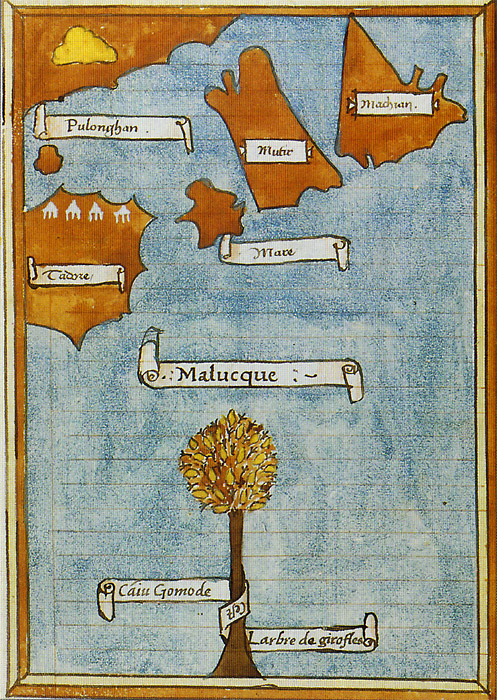 Machian.
Pulonghan.
Mutir
Mare
Tadore
Malucque
Caiu Gomode
Larbre de girofles